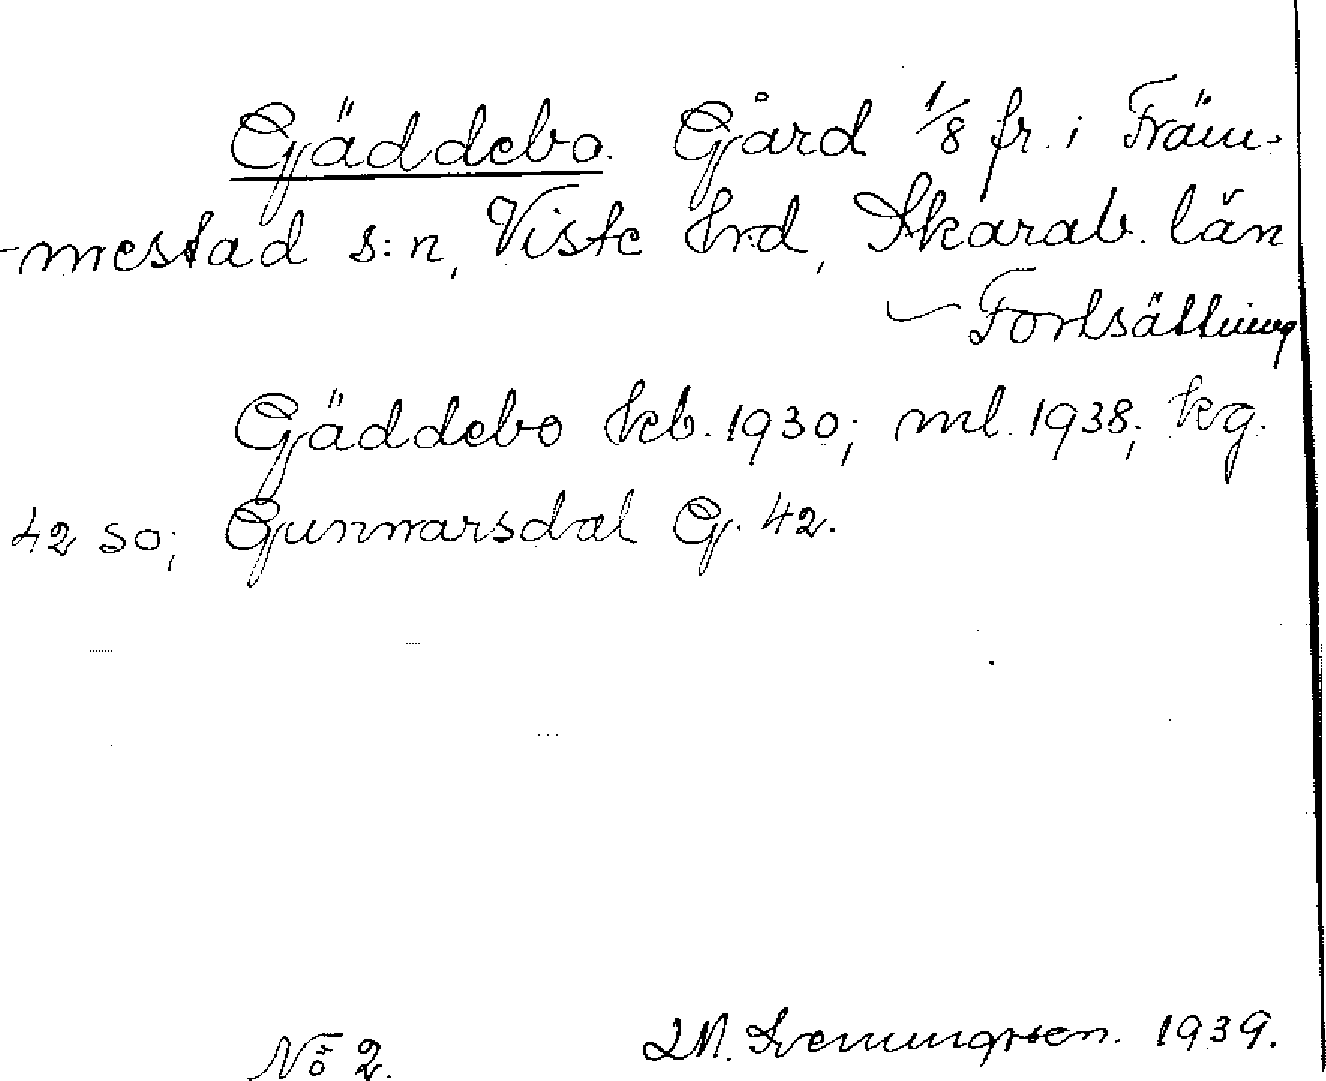 Gäddebo. Gård 1/8 fr. i Främ-
-mestad s:n, Viste hrd, Skarab. län
- Fortsättning
Gäddebo kb. 1930; ml. 1938; kg.
42 SO; Gunnarsdal G. 42.
No 2. M. Svenungsson. 1939.